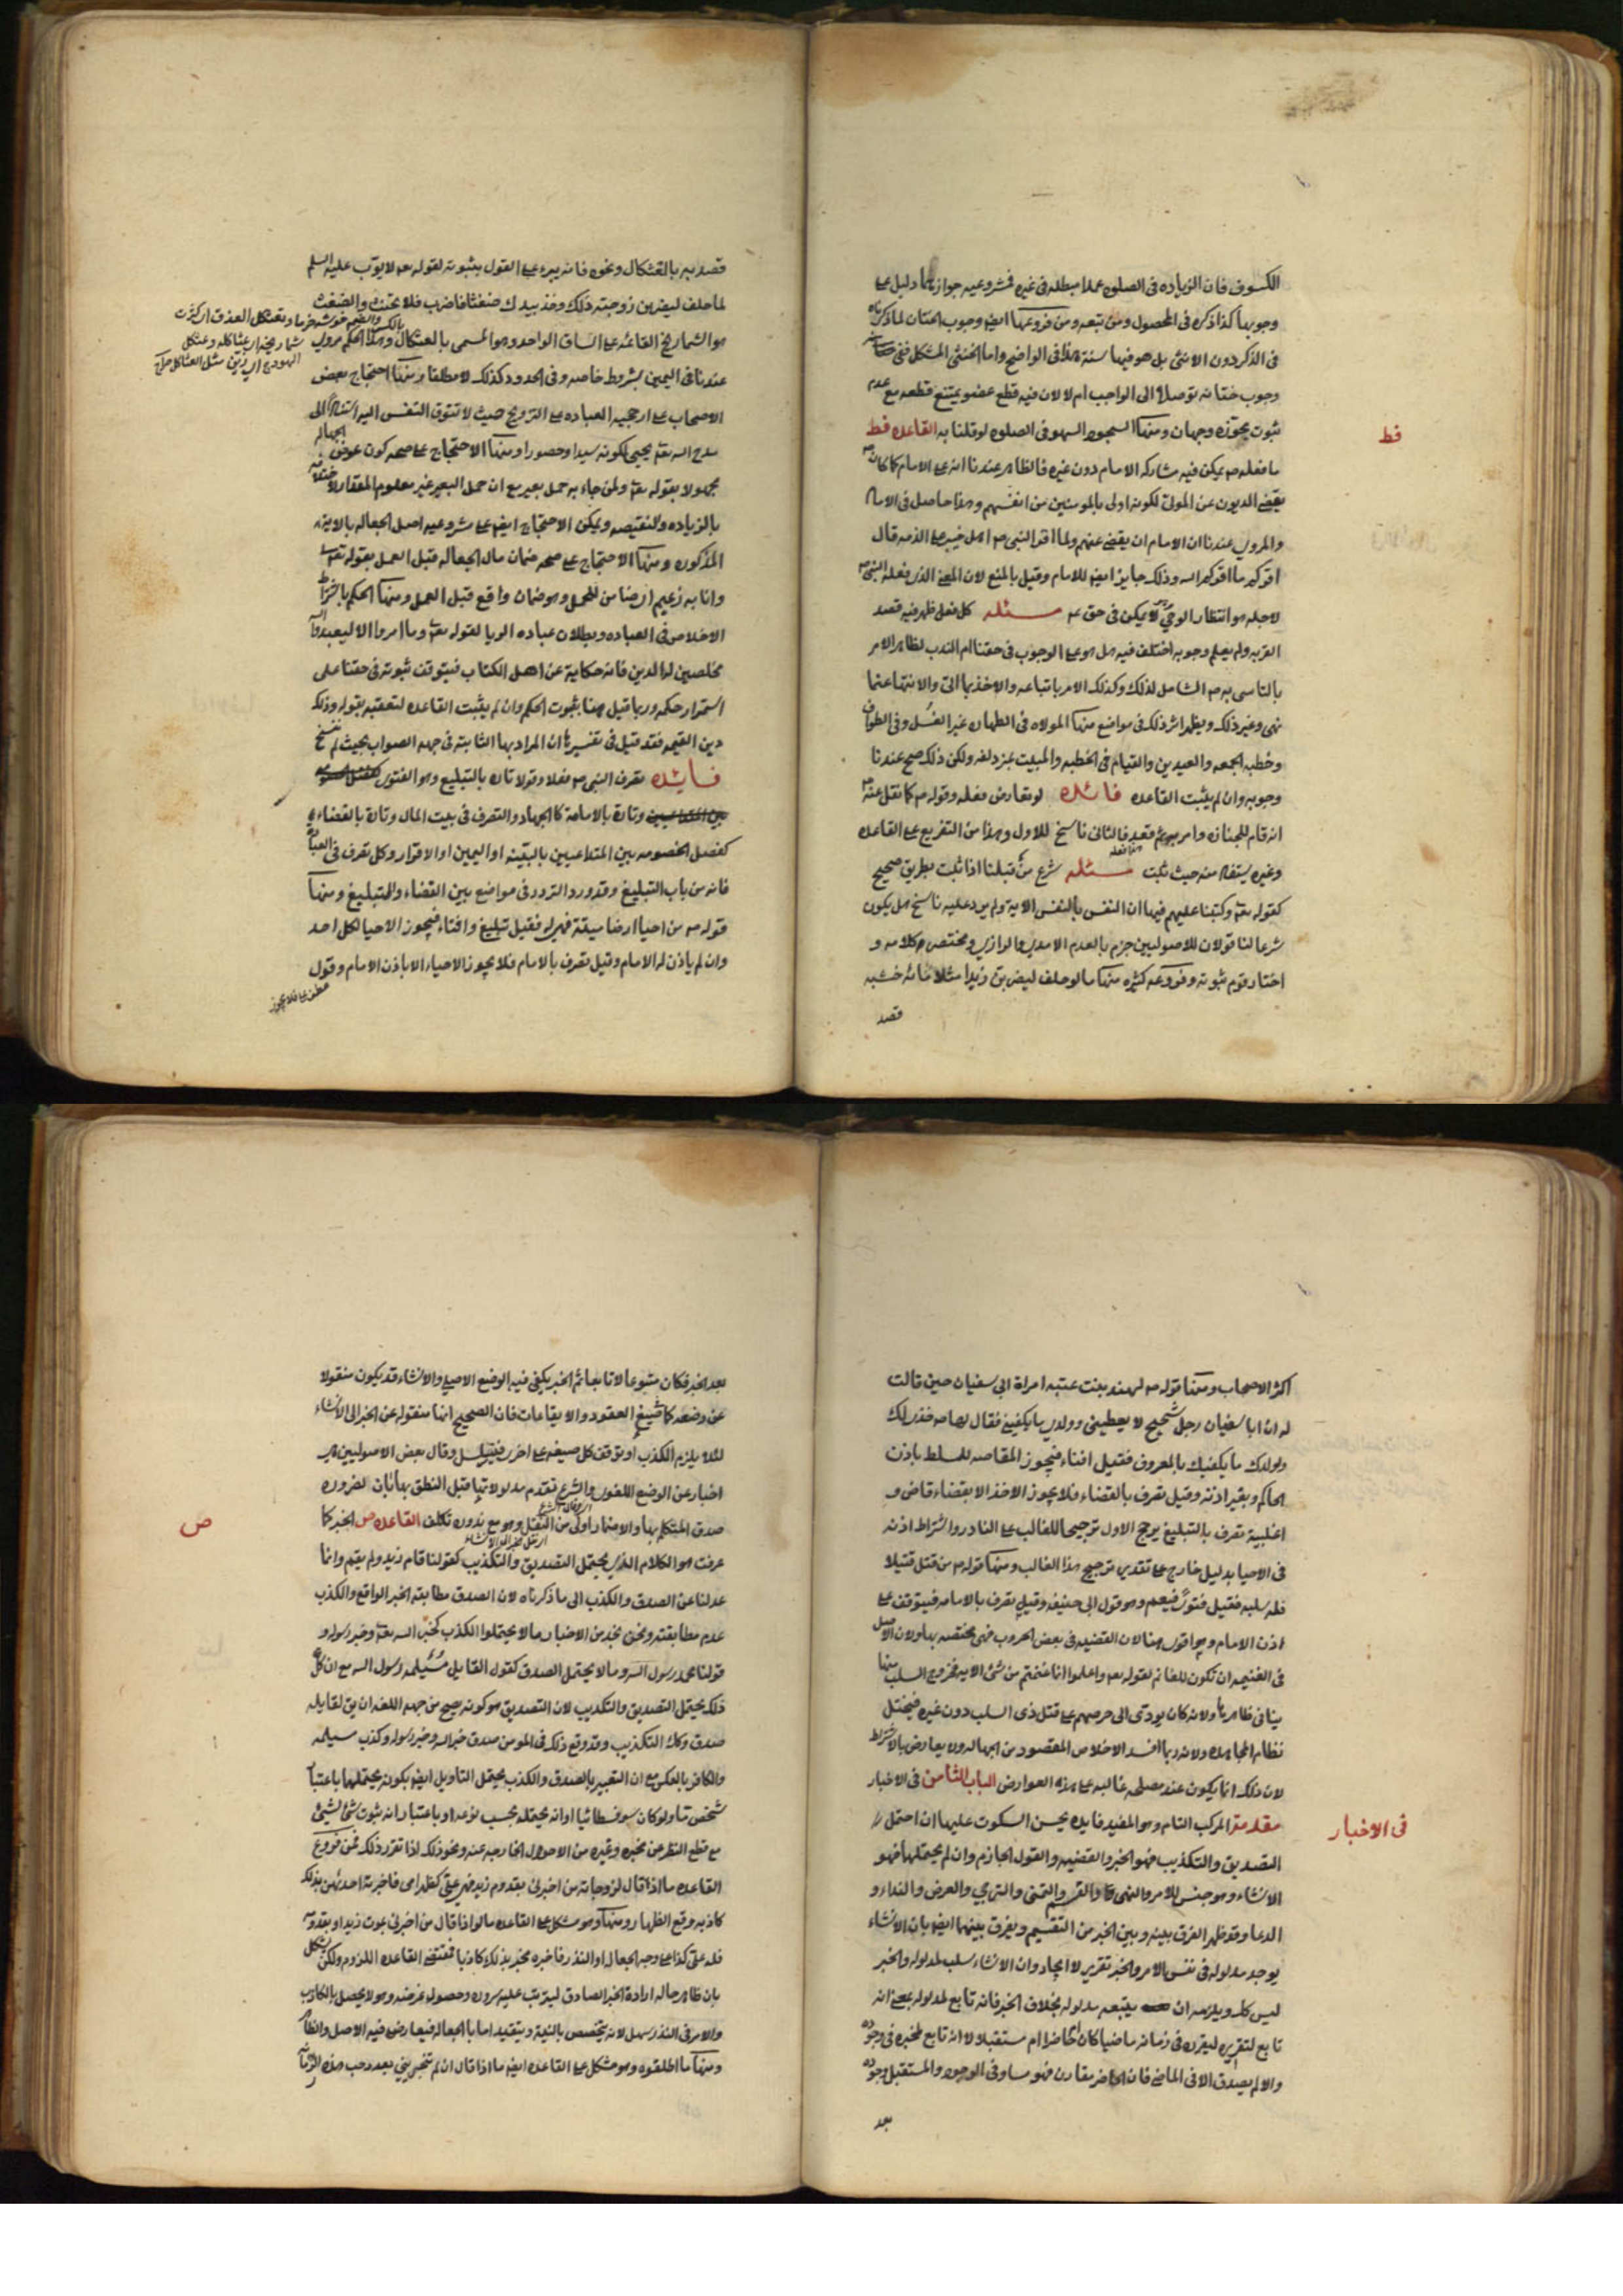 الكسوف فان الزياده فى الصلوه عمدا مبطله فى غيره فمشروعيه جوازهما دليل على
وجوبها كذا ذكره فى المحصول ومن تبعه ومن فروعها ايضا وجوب الختان لما ذكرناه
فى الذكر دون الانثى بل هو فيها سنة هذا فى الواضح واما الخنثى المشكل ففى
وجوب ختانه توصلا الى الواجب ام لا لان فيه قطع عضو يمتنع قطعه مع عدم
ثبوت يجوزه وجهان ومنها السجود السهو فى الصلوه لو قلنا به القاعده قط
قط
ما فعله ص يمكن فيه مشاركه الامام دون غيره فالظاهر عندنا انه على الامام كما كان ص
يقضى الديون عن المولى لكونه اولى بالمومنين من انفسهم وهذا حاصل فى الامام
والمروى عندنا ان الامام ان يقضى عنهم ولما اقر النبى ص اهل خيبر على الذمه قال
اقركم ما اقركم الله وذلك جايز ايضا للامام وقيل بالمنع لان المعنى الذى فعله النبى ص
لاجله هو انتظار الوحى لا يمكن فى حق مسئله كل فعل ظهر فيه قصد
القربه ولم يعلم وجوبه اختلف فيه هل هو على الوجوب فى حقنا ام الندب لظاهر الامر
بالتاسى به ص الشامل لذلك وكذلك الامر باتباعه والاخذ بما اتى والانتها عنما
نهى وغير ذلك ويظهر اثر ذلك فى مواضع منها الموالاه فى الطهاره غير الغسل وفى الطواف
وخطبه الجمعه والعيدين والقيام فى الخطبه والمبيت بمزدلفه ولكن ذلك صح عندنا
وجوبه وان لم يثبت القاعده فائده لو تعارض فعله وقوله ص كما نقل عنه ص
انه قام للجنازه وامر به ثم قعد فالثانى ناسخ للاول وهذا من التفريع على القاعده
وغيره يستفاد منه حيث ثبت مسئله شرع من قبلنا اذا ثبت بطريق صحيح
كقوله تعا وكتبنا عليهم فيها ان النفس بالنفس الاية ولم يرد عليه ناسخ هل يكون
شرعا لنا قولان للاصوليين جزم بالعدم الامدى والرازى ومختصر كلامه و
اختار قوم ثبوته وفروعه كثيره منها ما لو حلف ليضربن زيدا مثلا مائة خشبه
قصد
قصد به بالعثكال ونحوه فانه يبرء على القول بثبوته لقوله تعا لايوب عليه السلم
لما حلف ليضربن زوجته ذلك وخذ بيدك ضغثا فاضرب فلا تحنث والضغث
هو الشماريخ القائمه على الساق الواحد وهو المسمى بالعثكال وهذا الحكم مروى
عندنا فى اليمين بشروط خاصه وفى الحدود كذلك لا مطلقا ومنها احتجاج بعض
الاصحاب على ارجحيه العباده على التزويج حيث لا تتوق النفس اليه استنادا الى
مدح الله تعا يحيى لكونه سيدا وحصورا ومنها الاحتجاج على صحه كون عوض الجهاله
مجهولا بقوله تعا ولمن جاء به حمل بعير مع ان حمل البعير غير معلوم المقدار لاختلافه
بالزياده والنقيصه ويمكن الاحتجاج ايضا على مشروعيه اصل الجعاله بالاية
المذكوره ومنها الاحتجاج على صحه ضمان مال الجعاله قبل العمل بقوله تعا
وانا به زعيم اى ضامن للحمل وهو ضمان واقع قبل العمل ومنها الحكم باشتراط
الاخلاص فى العباده وبطلان عباده الريا لقوله تعا وما امروا الا ليعبدوا الله
مخلصين له الدين فانه حكاية عن اهل الكتاب فيتوقف ثبوته فى حقنا على
استمرار حكمه وربما قيل هنا بثبوت الحكم وان لم يثبت القاعده لتعقبه بقوله وذلك
دين القيمه فقد قيل فى تفسيرها ان المراد بها الثابته فى جهه الصواب بحيث لم تنسخ
فايده تصرف النبى ص فعلا وقولا تاره بالتبليغ وهو الفتوى
وتارة بالامامة كالجهاد والتصرف فى بيت المال وتارة بالقضاء
كفصل الخصومه بين المتداعيين بالبينه او اليمين او الاقرار وكل تصرف فى العباده
فانه من باب التبليغ وقد ورد التردد فى مواضع بين القضاء والتبليغ ومنها
قوله ص من احيا ارضا ميتة فهى له فقيل تبليغ وافتاء فيجوز الاحيا لكل احد
وان لم ياذن له الامام وقيل تصرف بالامام فلا يجوز الاحياء الا باذن الامام وقول
اكثر الاصحاب ومنها قوله ص لهند بنت عتبه امراة ابى سفيان حين قالت
له ان ابا سفيان رجل شحيح لا يعطينى وولدى ما يكفينى فقال لها ص خذى لك
ولولدك ما يكفيك بالمعروف فقيل افتاء فيجوز المقاصه للمسلط باذن
الحاكم وبغير اذنه وقيل تصرف بالقضاء فلا يجوز الاخذ الا بقضاء قاض و
اغلبية تصرف بالتبليغ يرجح الاول ترجيحا للغالب على النادر واشتراط اذنه
فى الاحيا بدليل خارج على تقدير ترجيح هذا الغالب ومنها قوله ص من قتل قتيلا
فله سلبه فقيل فتوى فيعم وهو قول ابى حنيفه وقيل تصرف بالامامه فيتوقف على
اذن الامام وهو اقوى هنا لان القضيه فى بعض الحروب فهى مختصه بها ولان الاصل
فى الغنيمه ان تكون للغانم لقوله تعا واعلموا انما غنمتم من شئ الاية فخروج السلب منها
ينافى ظاهرها ولانه كان يودى الى حرصهم على قتل ذى السلب دون غيره فيختل
نظام المجاهده ولانه ربما افسد الاخلاص المقصود من الجهاد ولا يعارض بالاشتراط
لان ذلك انما يكون عند مصلحه غالبه على هذه العوارض الباب الثامن فى الاخبار
فى الاخبار
مقدمة المركب التام وهو المفيد فايده يحسن السكوت عليها ان احتمل
التصديق والتكذيب فهو الخبر والقضيه والقول الجازم وان لم يحتملها فهو
الانشاء وهو جنس للامر والنهى والقسم والتمنى والترجى والعرض والنداء و
الدعا وقد ظهر الفرق بينه وبين الخبر من التقسيم ويفرق بينهما ايضا بان الانشاء
يوجد مدلوله فى نفس الامر والخبر تقرير لا ايجاد وان الانشاء سلب لمدلوله والخبر
ليس كك ويلزمه ان يتبعه مدلوله بخلاف الخبر فانه تابع لمدلوله بمعنى انه
تابع لتقريره ليقرره فى زمانه ماضيا كان ام حاضرا ام مستقبلا لا انه تابع لمخبره فى وجوده
والا لم يصدق الا فى الماضى فان الحاضر مقارن فهو مساو فى الوجود والمستقبل وجوده
بعد
بعد الخبر فكان متبوعا لا تابعا ثم الخبر يكفى فيه الوضع الاصلى والانشاء قد يكون منقولا
عن وضعه كما صيغ العقود والايقاعات فان الصحيح انها منقوله عن الخبر الى الانشاء
لئلا يلزم الكذب او توقف كل صيغه على اخرى فيتسلسل وقال بعض الاصوليين هى
اخبار عن الوضع اللغوى والشرع تقدم مدلولاتها قبل النطق بها بان لضروره
صدق المتكلم بها والاضمار اولى من النقل وهو مع بدوره تكلف القاعده ص الخبر كما
ص
عرفت هو الكلام الذى يحتمل التصديق والتكذيب كقولنا قام زيد ولم يقم وانما
عدلنا عن الصدق والكذب الى ما ذكرناه لان الصدق مطابقه الخبر الواقع والكذب
عدم مطابقته ونحن نجد من الاخبار ما لا يحتمل الكذب كخبر الله تعا وخبر رسوله و
قولنا محمد رسول الله وما لا يحتمل الصدق كقول القايل مسيلمه رسول الله مع ان كل
ذلك يحتمل التصديق والتكذيب لان التصديق هو كونه يصح من جهه اللغه ان يق لقايله
صدق وكك التكذيب وقد وقع ذلك فى المومن صدق خبر الله وخبر رسوله وكذب مسيلمه
والكافر بالعكس مع ان التعبير بالصدق والكذب يحتمل التاويل ايضا بكونه يحتملها باعتبار
شخص ما ولو كان سوفسطائيا او انه يحتمله بحسب نوعه او باعتبار انه ثبوت شئ لشئ
مع قطع النظر عن مخبره وغيره من الاحوال الخارجه عنه ونحو ذلك اذا تقرر ذلك فمن فروع
القاعده ما اذا قال لزوجاته من اخبرنى بقدوم زيد فهى على كظهر امى فاخبرته احديهن بذلك
كاذبه وقع الظهار ومنها وهو مشكل على القاعده ما لو اذا قال من اخبرنى بموت زيد او بقدومه
فله على كذا على وجه الجعاله او النذر فاخبره مخبر بذلك كاذبا فمقتضى القاعده اللزوم ولكن يشكل
بان ظاهر حاله ارادة الخبر الصادق ليترتب عليه سروره وحصول غرضه وهو لا يحصل بالكاذب
والامر فى النذر سهل لانه يتخصص بالنية ويتقيد اما بالجعاله فيعارض فيه الاصل والظاهر
ومنها ما اطلقوه وهو مشكل على القاعده ايضا ما اذا قال ان لم تخبرينى بعدد حب هذه الرمانه